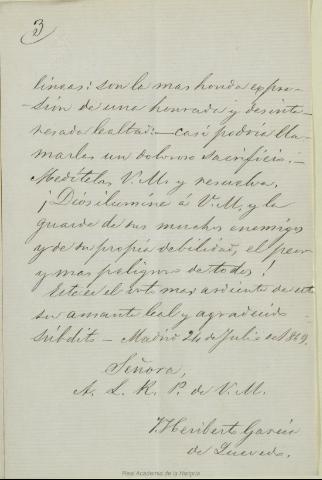 3
líneas: son la mas honda expre-
-sión de una honrada y desinte-
resada lealtad:— casi podría lla-
marlas un doloroso sacrificio.—
Medítelas V. M. y resuelva.
¡Dios ilumine á V. M. y la
guarde de sus muchos enemigos
y de su propia debilidad, el peor
y mas peligroso de todos!
Este es el voto mas ardiente de este
su amante leal y agradecido
súbdito — Madrid 24 de Julio de 1869.
Señora,
A. L. R. P. de V. M.
J. Heriberto García
de Quevedo.
Real Academia de la Historia